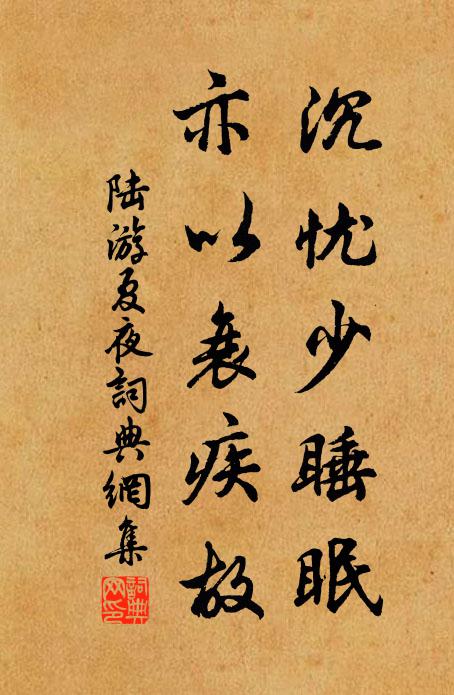 沉忧少睡眠
亦以衰疾故
陆游夏夜詞典網集
詞典
网印